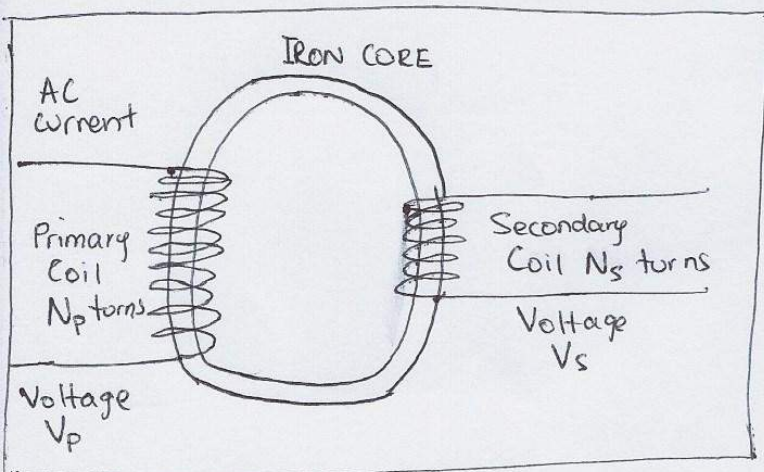 IRON CORE
AC
current
Primary
Coil
Np turns
Voltage
Vp
Secondary
Coil Ns turns
Voltage
Vs